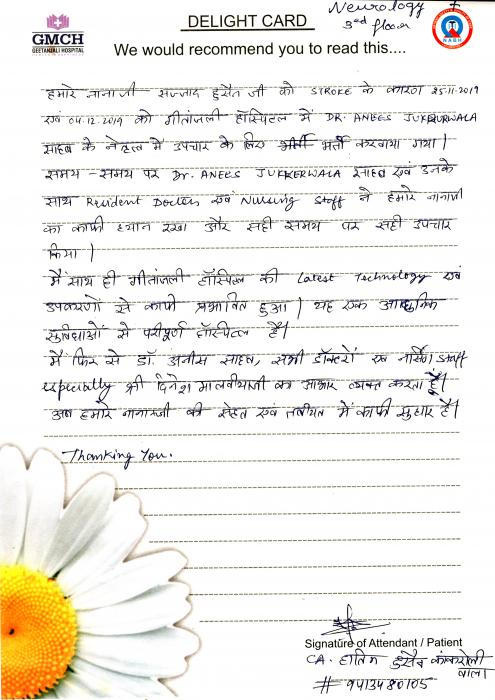 Neurology
3rd floor
DELIGHT CARD
GMCH
GEETANJALI HOSPITAL
NABH
We would recommend you to read this....
हमारे नानाजी सज्जाद हुसैन जी को STROKE के कारण 25.11.2019
एवं 04.12.2019 को गीतांजली हॉस्पिटल में DR. ANEES JUKKERWALA
साहब के नेतृत्व में उपचार के लिए भर्ती करवाया गया।
समय-समय पर Dr. ANEES JUKKERWALA साहब एवं उनके
साथ Resident Doctors एवं Nursing Staff ने हमारे नानाजी
का काफी ध्यान रखा और सही समय पर सही उपचार
किया।
मैं साथ ही गीतांजली हॉस्पिटल की Latest Technology एवं
उपकरणों से काफी प्रभावित हुआ। यह एक आधुनिक
सुविधाओं से परिपूर्ण हॉस्पिटल है।
मैं फिर से डॉ. अनीस साहब, सभी डॉक्टरों एवं नर्सिंग staff
especially श्री दिनेश मालवीयाजी का आभार व्यक्त करता हूँ।
अब हमारे नानाजी की सेहत एवं तबीयत में काफी सुधार है।
Thanking You.
Signature of Attendant / Patient
CA. हातिम हुसैन कांकरोली
वाला
# 9413480105